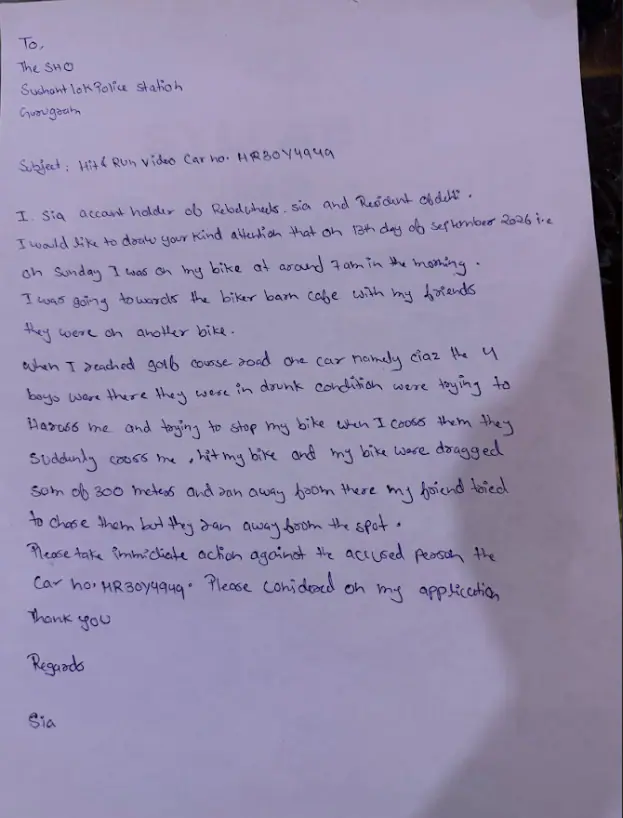 To,
The SHO
Sushant lok Police Station
Gurugram
Subject: Hit & Run Video Car no. HR30Y4949
I. Sia account holder of Rebelwheels.sia and Resident of delhi.
I would like to draw your kind attention that on 13th day of september 2026 i.e
on Sunday I was on my bike at around 7am in the morning.
I was going towards the biker barn cafe with my friends
they were on another bike.
when I reached golf course road one car namely ciaz the 4
boys were there they were in drunk condition were trying to
Harass me and trying to stop my bike when I cross them they
Suddenly cross me, hit my bike and my bike were dragged
som of 300 meters and ran away from there my friend tried
to chase them but they ran away from the spot.
Please take immidiate action against the accused person the
Car no. HR30Y4949. Please considered on my application
Thank you
Regards
Sia